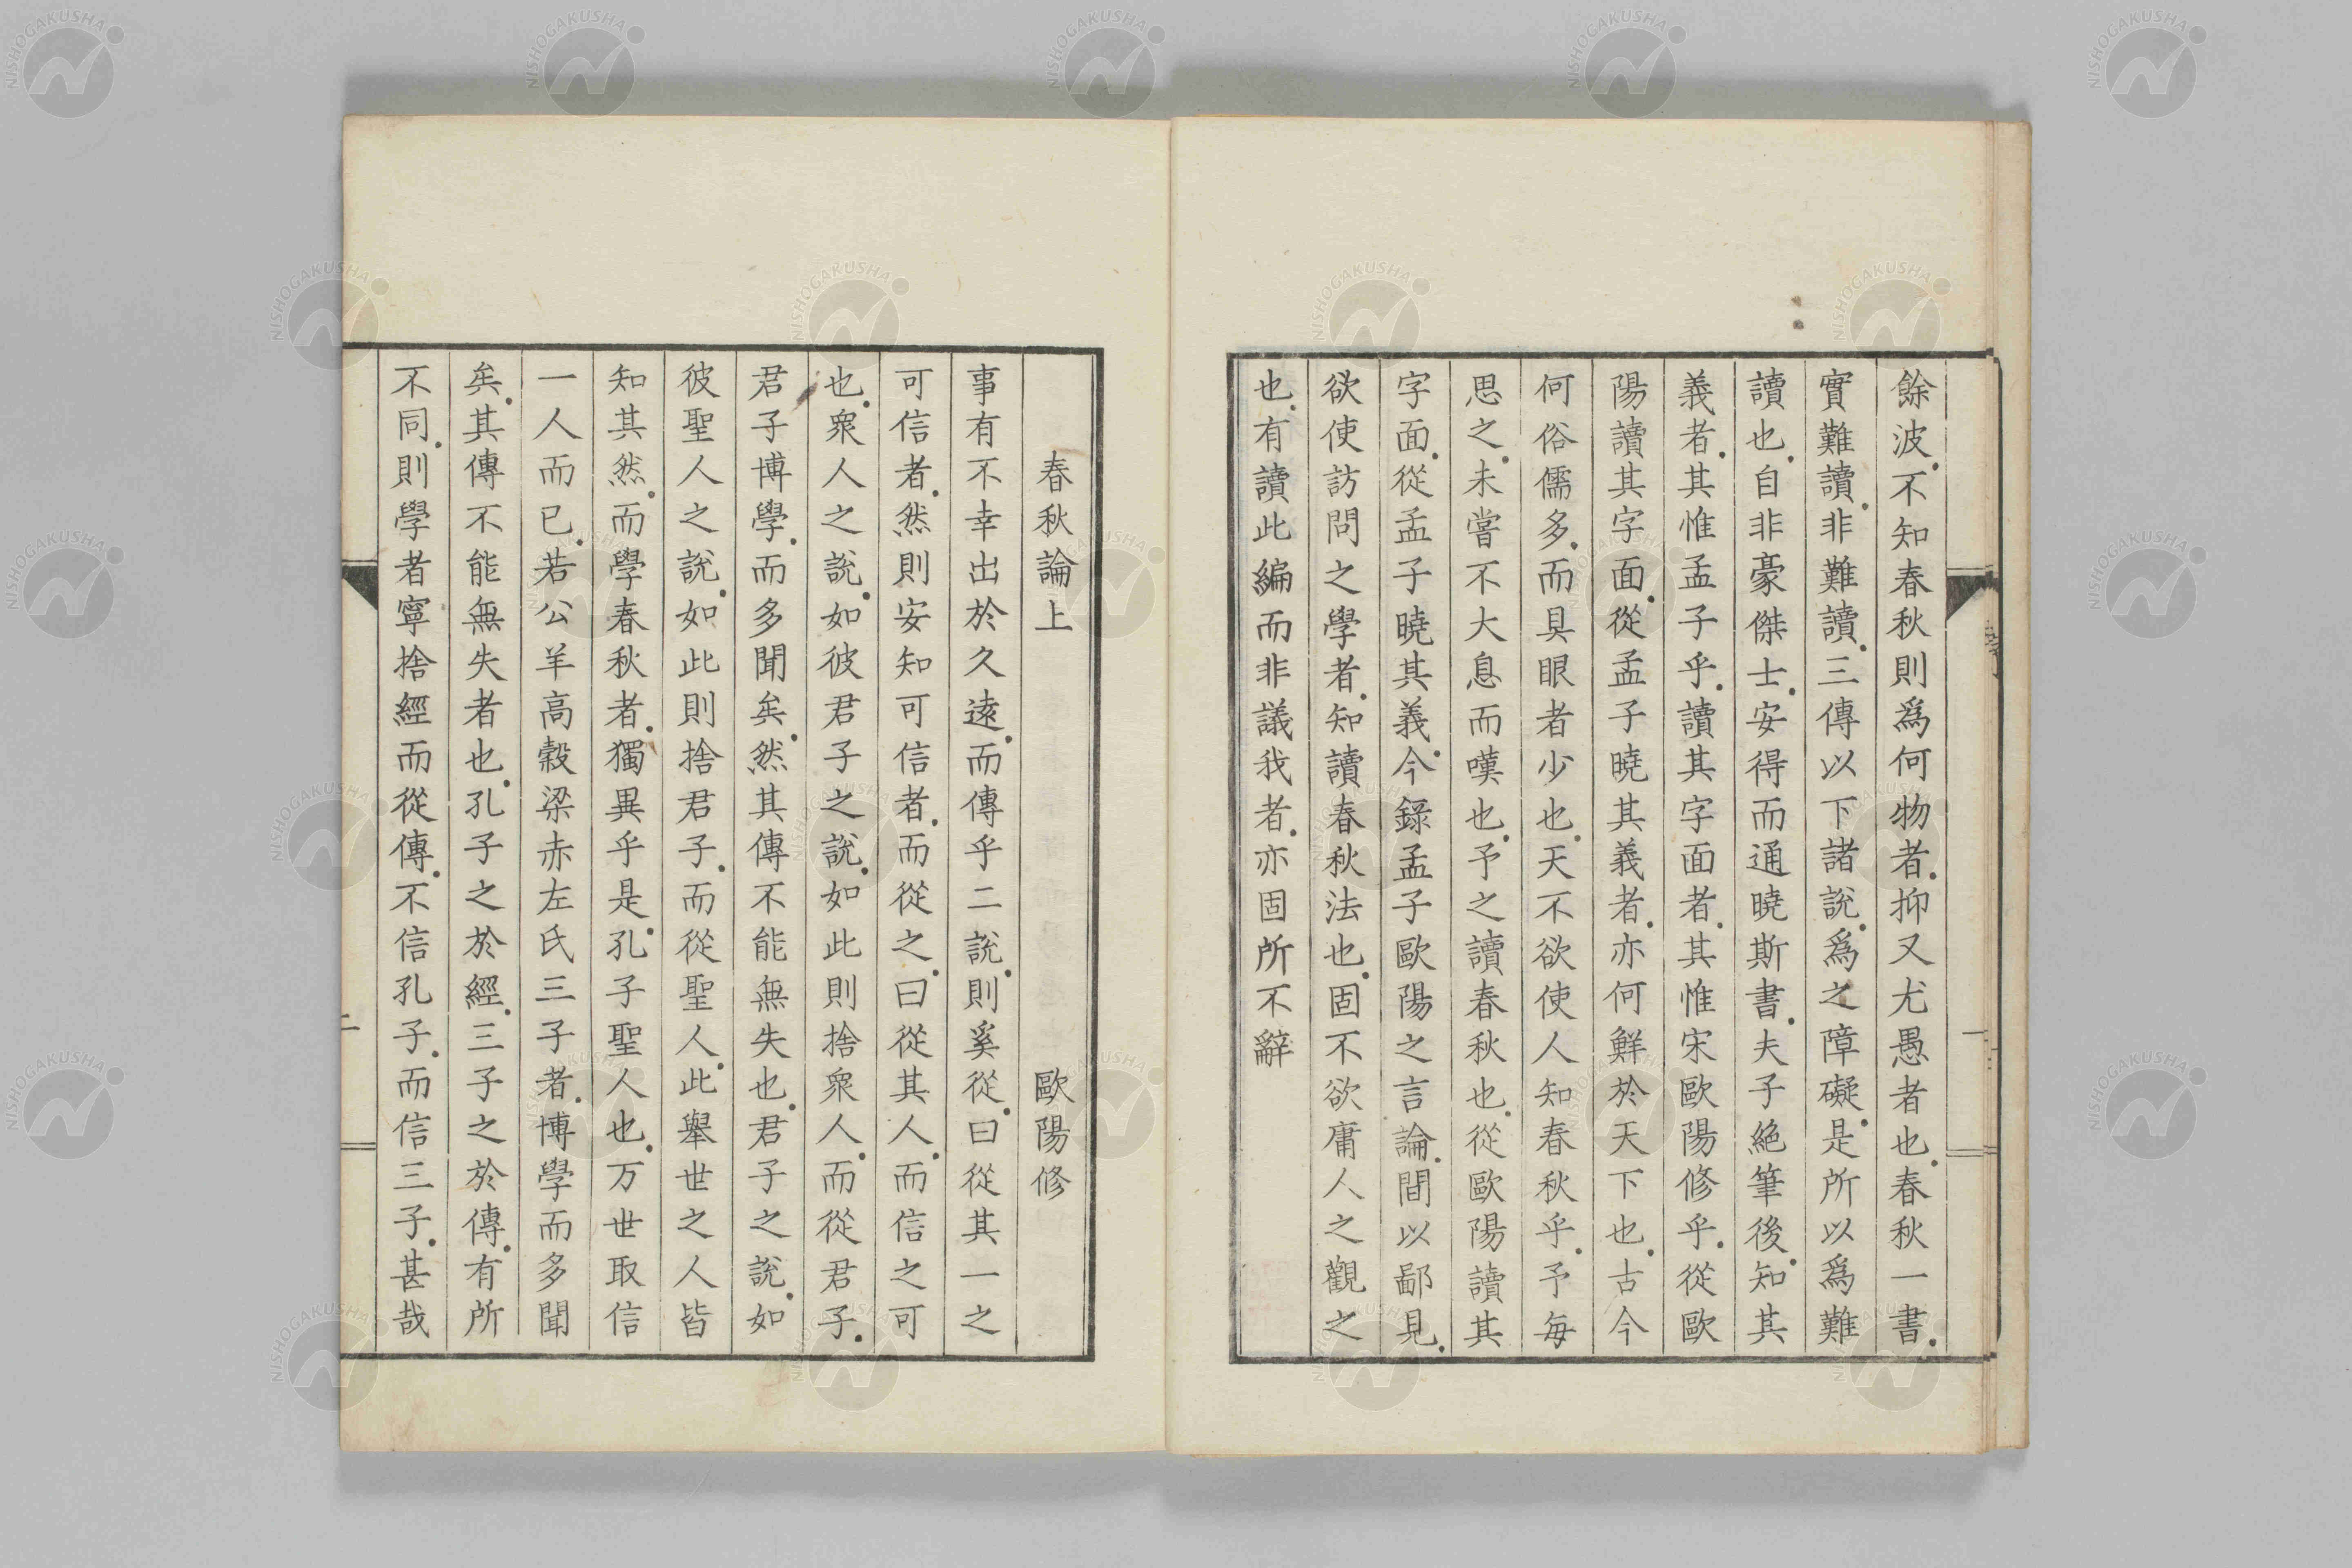 餘波不知春秋則爲何物者抑又尤愚者也春秋一書
實難讀非難讀三傳以下諸説爲之障礙是所以爲難
讀也自非豪傑士安得而通曉斯書夫子絶筆後知其
義者其惟孟子乎讀其字面者其惟宋歐陽修乎從歐
陽讀其字面從孟子曉其義者亦何鮮於天下也古今
何俗儒多而具眼者少也天不欲使人知春秋乎予每
思之未嘗不大息而嘆也予之讀春秋也從歐陽讀其
字面從孟子曉其義今錄孟子歐陽之言論間以鄙見
欲使訪問之學者知讀春秋法也固不欲庸人之觀之
也有讀此編而非議我者亦固所不辭
春秋論上 歐陽修
事有不幸出於久遠而傳乎二説則奚從曰從其一之
可信者然則安知可信者而從之曰從其人而信之可
也衆人之説如彼君子之説如此則捨衆人而從君子
君子博學而多聞矣然其傳不能無失也君子之説如
彼聖人之説如此則捨君子而從聖人此舉世之人皆
知其然而學春秋者獨異乎是孔子聖人也万世取信
一人而已若公羊高穀梁赤左氏三子者博學而多聞
矣其傳不能無失者也孔子之於經三子之於傳有所
不同則學者寧捨經而從傳不信孔子而信三子甚哉
二
NISHOGAKUSHA